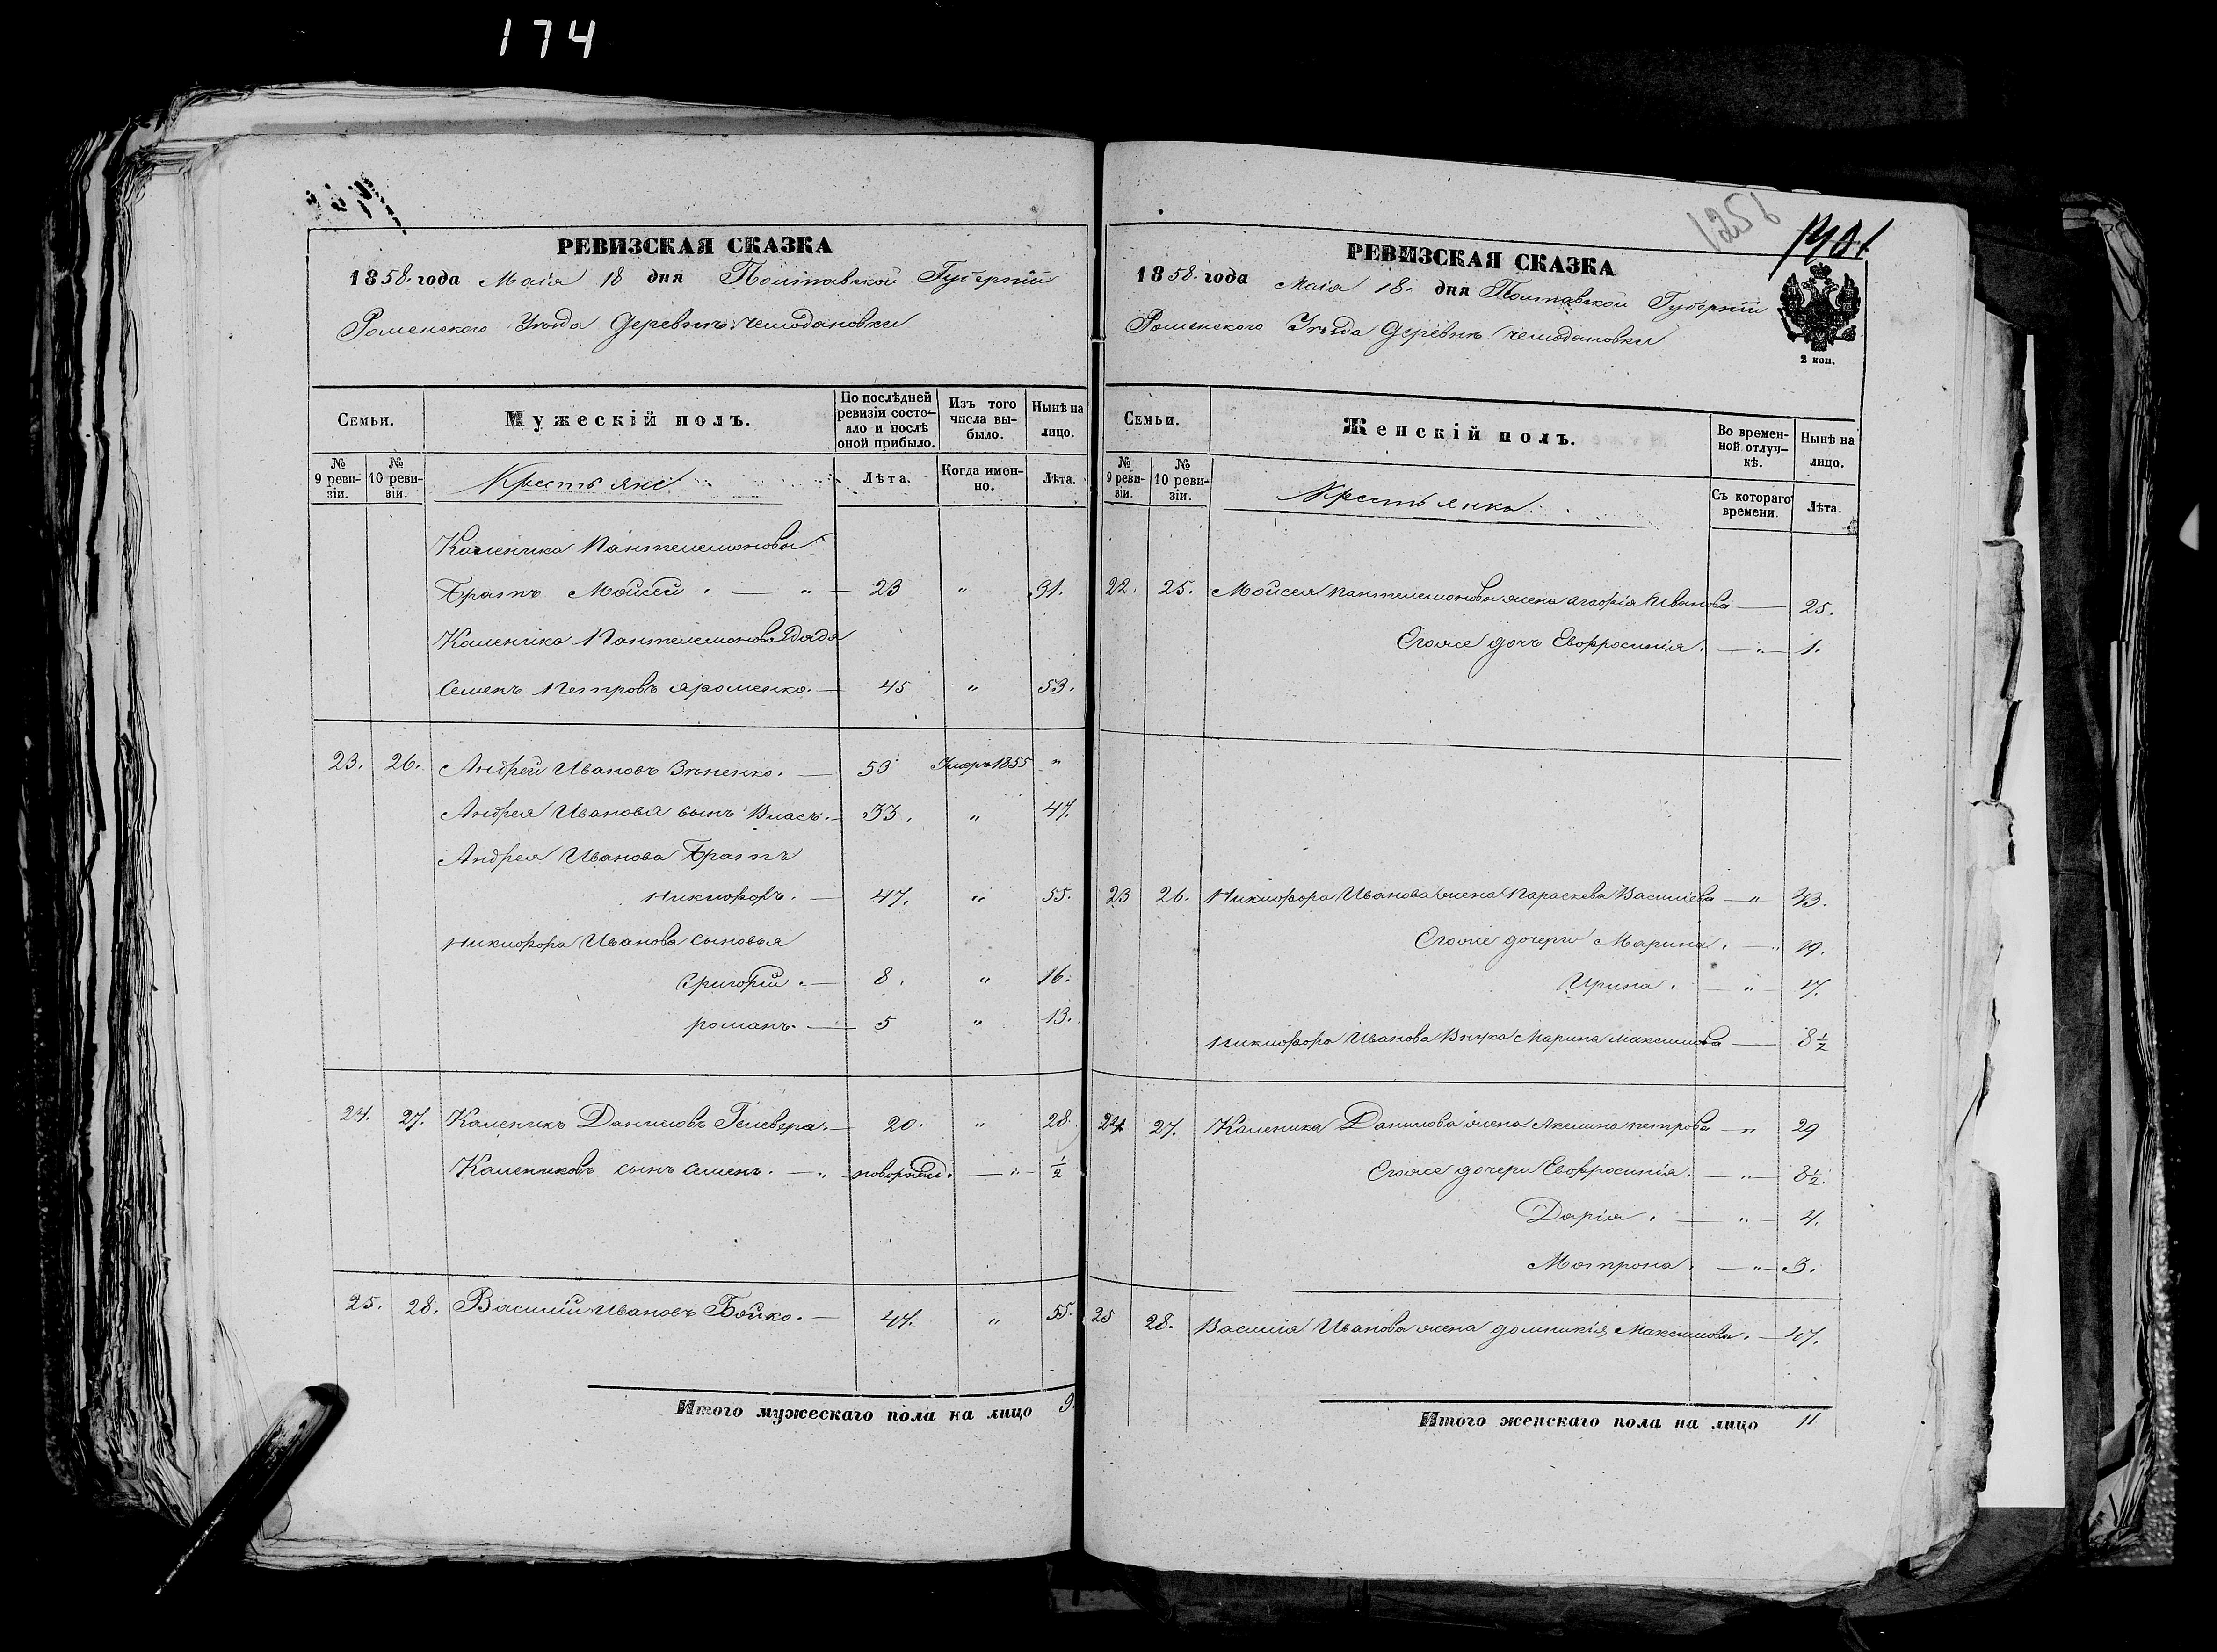 174
РЕВИЗСКАЯ СКАЗКА
1858 года Маія 18 дня Полтавской Губерніи
Роменскаго Уѣзда Деревни Чемодановки
Семьи.
Мужескій полъ.
По послѣдней ревизіи состояло и послѣ оной прибыло.
Изъ того числа выбыло.
Нынѣ на лицо.
№ 9 ревизіи.
№ 10 ревизіи.
Крестьяне
Лѣта.
Когда именно.
Лѣта.
Каленика Пантелемонова
Братъ Мойсей . — „ — 23 „ 31.
Каленика Пантелемонова Дядя
Семенъ Петровъ Яроменко. — 45 „ 53.
23. 26. Андрей Ивановъ Зѣненко. — 53 Умеръ 1855 „
Андрея Иванова сынъ Власъ. — 33. „ 41.
Андрея Иванова Братъ
Никифоръ. — 47. „ 55.
Никифора Иванова сыновья
Григорій. — 8. „ 16.
Романъ. — 5 „ 13.
24. 27. Каленикъ Даниловъ Гелевера. — 20. „ 28.
Калениковъ сынъ Семенъ. — „ новорожд. — „ — ½
25. 28. Василій Ивановъ Бойко. — 47. „ 55.
Итого мужескаго пола на лицо 9.
1256
1401
РЕВИЗСКАЯ СКАЗКА
1858 года Маія 18 дня Полтавской Губерніи
Роменскаго Уѣзда Деревни Чемодановки
2 коп.
Семьи.
Женскій полъ.
Во временной отлучкѣ.
Нынѣ на лицо.
№ 9 ревизіи.
№ 10 ревизіи.
Крестьянка
Съ котораго времени.
Лѣта.
22. 25. Мойсея Пантелемонова жена Агафія Иванова — 25.
Егоже дочь Евфросинія. — „ — 1.
23 26. Никифора Иванова жена Параскева Василіева — „ 43.
Егоже дочери Марина. — „ 19.
Ирина. — „ — 17.
Никифора Иванова Внучка Марина Максимова — 8½
24 27. Каленика Данилова жена Акелина Петрова — „ 29
Егоже дочери Евфросинія. — „ — 8½.
Дарія. — „ — 4.
Мотрона. — „ — 3.
25 28. Василія Иванова жена Домникія Максимова. — 47.
Итого женскаго пола на лицо 11